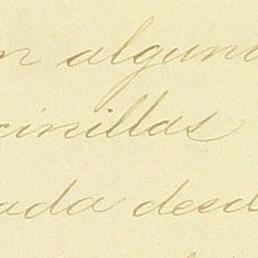 n alguna
cinillas
ada desd